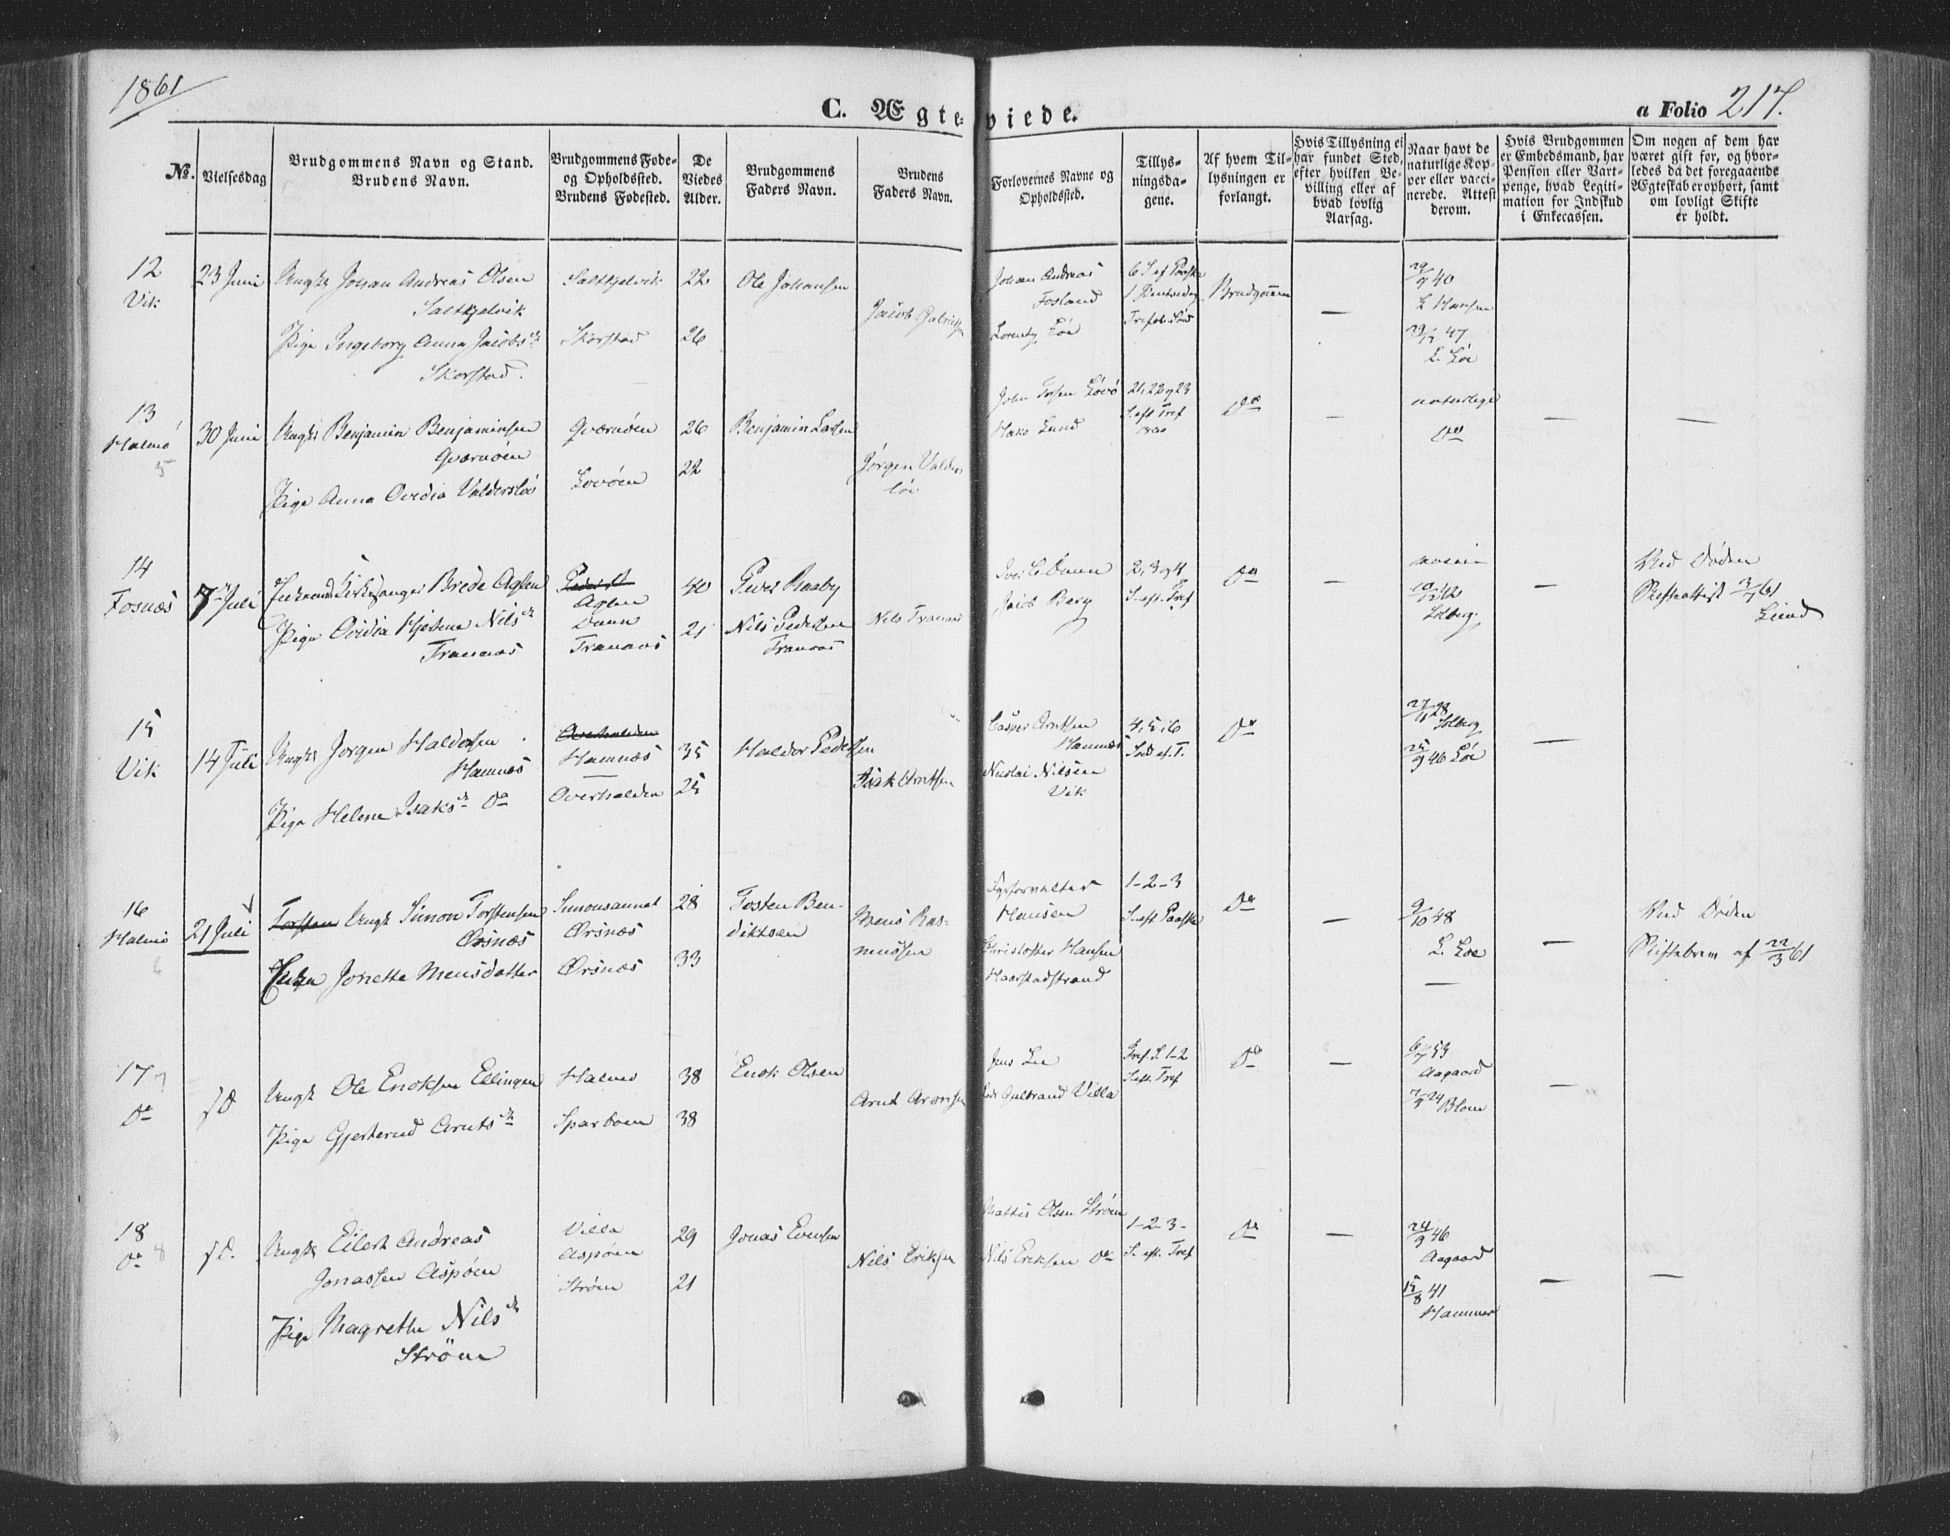 1861
C. Ægteviede.
a Folio 217.
№.
Vielsesdag
Brudgommens Navn og Stand.
Brudens Navn.
Brudgommens Føde-
og Opholdssted.
Brudens Fødested.
De
Viedes
Alder.
Brudgommens
Faders Navn.
Brudens
Faders Navn.
Forlovernes Navne og
Opholdssted.
Tillys-
ningsda-
gene.
Af hvem Til-
lysningen er
forlangt.
Hvis Tillysning ei
har fundet Sted,
efter hvilken Be-
villing eller af
hvad lovlig
Aarsag.
Naar havt de
naturlige Kop-
per eller vacci-
nerede. Attest
derom.
Hvis Brudgommen
er Embedsmand, har
Pension eller Vart-
penge, hvad Legiti-
mation for Indskud
i Enkecassen.
Om nogen af dem har
været gift før, og hvor-
ledes da det foregaaende
Ægteskab er ophørt, samt
om lovligt Skifte
er holdt.
12
Vik
23 Juni
Ungk Johan Andreas Olsen
Saltkjelvik
Pige Ingeborg Anna Jacobsd
Skorstad.
Saltkjelvik
Skorstad
22
26
Ole Johansen
Jacob Gabrielsen
Johan Andreas
Fosland
Lorentz Löe
Brudgommen
—
29/9 40
L. Hansen
47
L. Löe
13
Halmö
5
30 Juni
Ungk Benjamin Benjaminsen
Qværnöen
Pige Anna Ovidia Valderslöe
Qværnöen
Lovöen
26
22
Benjamin Larsen
Jörgen Valders
löe
Lund
21, 22 og 23
S. eft. Tref
Do
—
naturlige
Do
—
—
14
Fosnæs
7 Juli
Enkemand Kirkesanger Brede Aglen
Pige Ovidia Nilsd
Tranaas
Aglen
Duun
Tranaas
40
21
Nils Pedersen
Tranaas
Nils Tranaas
Duun
Jacob Berg
2, 3 og 4
S. eft. Tref
Do
—
—
Ved Döden
Skifteattest 3/7 61
Lund
15
Vik
14 Juli
Ungk Jörgen Haldorsen
Hamnæs
Pige Helene Isaksd Do
Overhalden
Hamnæs
Overhalden
35
25
Haldor Pedersen
Isak Arntsen
Casper Arntsen
Hamnæs
Nicolai Nilsen
Vik
4, 5, 6
Sönd. ef. T.
Do
28
Solberg
25/9 46 Löe
—
16
Halmö
6
21 Juli
Torsten Ungk Simon Torstensen
Örsnæs
Enke Jonette Mensdatter
Simonsannet
Örsnæs
Örsnæs
28
33
Tosten Ben-
diktsen
Mens Ras-
mussen
Fyrforvalter
Hansen
Christoffer Hansen
Haarstadstrand
1-2-3
S. eft. Paaske
Do
—
9/10 48
L. Löe
—
—
Ved Döden
Skiftebrev af 22/3 61
17
7
Do
s D
Ungk Ole Enoksen Ellingen
Pige Gjertrud Arntsd
Halmö
Sparboen
38
38
Enok Olsen
Arnt Arensen
Jens Lee
Gulbrand Villa
Tref S. 1-2
S. eft. Tref
Do
—
6/7 53
Aagaard
7/9 24
Blom
—
18
8
Do
s D.
Ungk Eilert Andreas
Jonassen Aspöen
Pige Magrethe Nilsd
Ström
Villa
Aspöen
Ström
29
21
Jonas Evensen
Nils Eriksen
Mattis Olsen Ström
Nils Eriksen Do
1-2-3-
S. eft. Tref
Do
—
24/9 46
Aagaard
15/8 41
Hammer
—
—